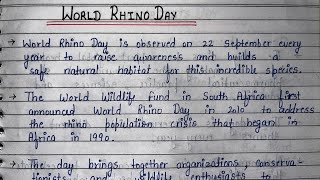 WORLD RHINO DAY
→ World Rhino Day is observed on 22 September every
year to raise awareness and builds a
safe natural habitat for this incredible species.
→ The World Wildlife Fund in South Africa first
announced World Rhino Day in 2010 to address
the rhino population crisis that began in
Africa in 1990.
→ The day brings together organizations, conserva-
tionists and wildlife enthusiasts to